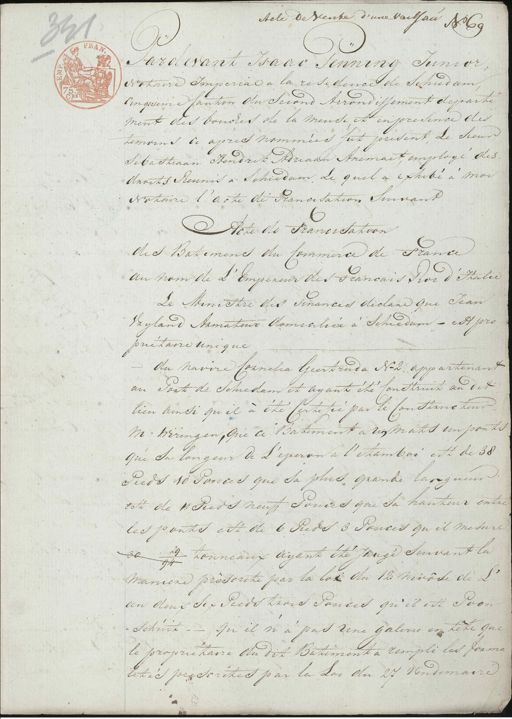 Acte de vente d'une vaisseau No 69
331
75 CEN
FRAN.
Pardevant Isaac Penning Junior
Notaire Imperial a la residence de Schiedam
Cinquieme Canton du Second Arrondissement departe
ment des bouches de la meuse et en presence des
temoins ci apres nommées fut present, Le Sieur
Sebastiaan Andries Adriaan employé des
droits Reunis a Schiedam, Le quel a exhibé à moi
Notaire l'acte de Francisation Suivant
Acte de Francisation
des Batimens du Commerce de France
au nom de L'Empereur des Francais Roi d'Italie
Le Ministre des Finances declare que Jean
Armateur domicilée à Schiedam - est pro
priétaire unique
- du navire Cornelia Geertruda No 2, appartenant
au Port de Schiedam et ayant été construit au dit
lieu ainsi qu'il à été Certifié par le Constructeur
Mr Weringen, que ce Batiment a un mats un ponts
que sa longeur de L'eperon a l'etambot est de 38
Pieds 10 Pouces que sa plus grande largueur
est de 11 Pieds neuf Pouces que sa hauteur entre
les ponts est de 6 Pieds 3 Pouces qu'il mesure
29/94 tonneaux ayant été jaugé suivant la
maniere prescrite par la loi du 12 nivôse de L'
an deux Six Pieds trois Pouces qu'il est Poon
-Schuit - qu'il n'a pas une galerie en tête que
le proprietaire du dit Batiment a rempli les forma
lités prescrites par la Loi du 27 Vendemiaire